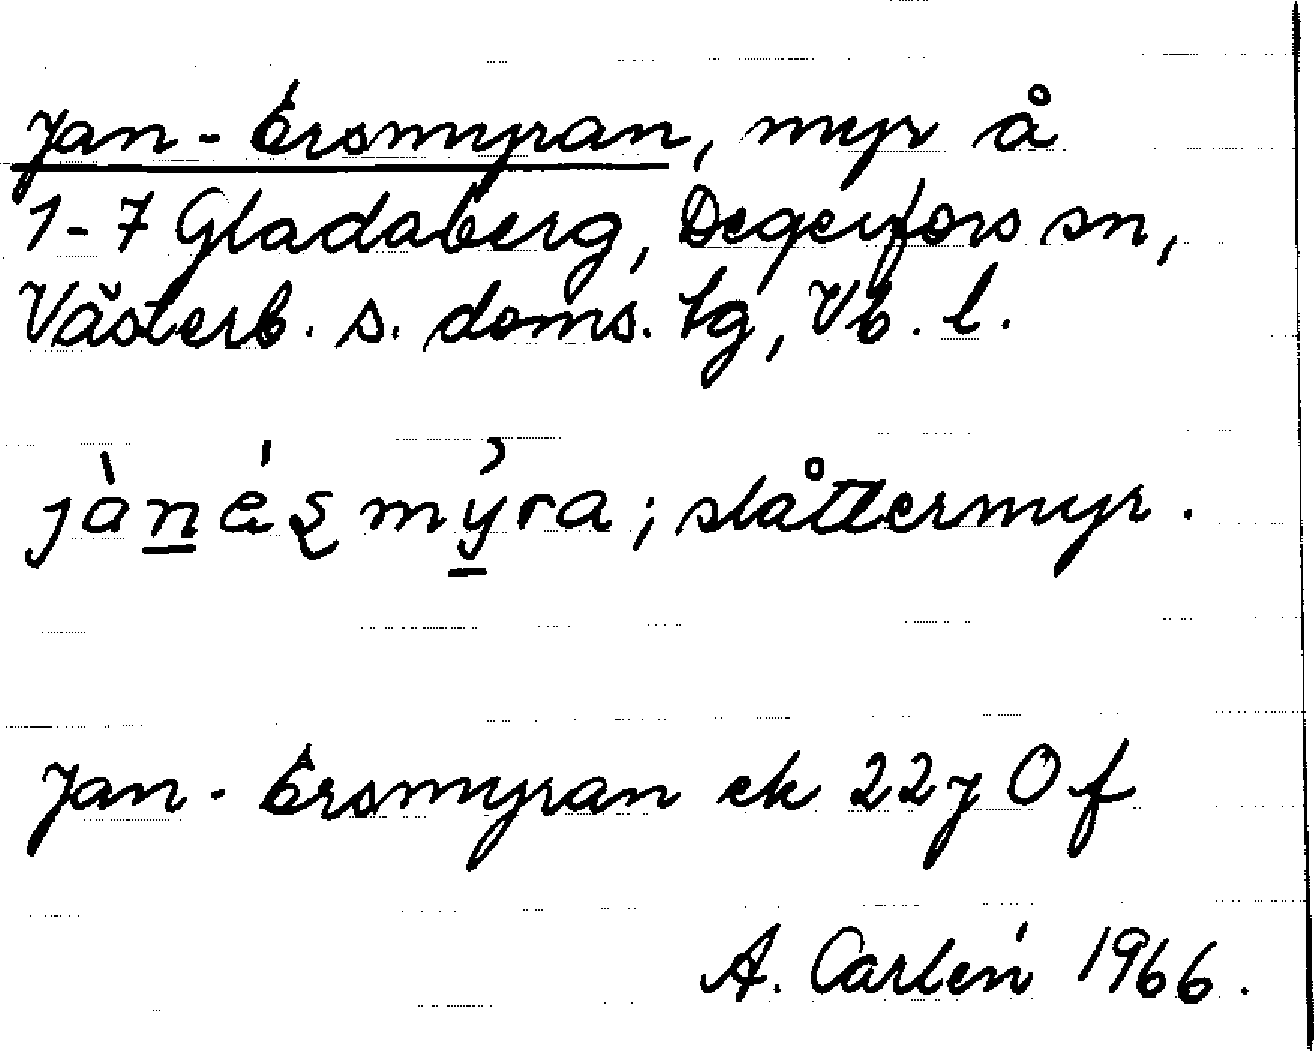 Jan-Ersmyran, myr å
1-7 Gladaberg, Degerfors sn,
Västerb. s. doms. tg, Vb. l.
jànésmýra; slåttermyr.
Jan-Ersmyran ek 22 7 0 f
A. Carlén 1966.